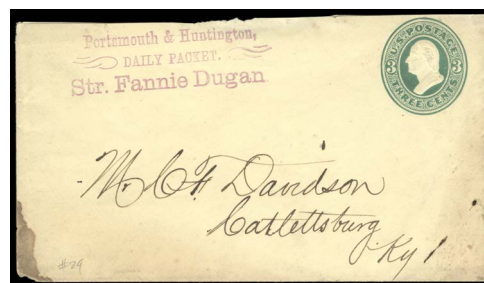 Portsmouth & Huntington,
DAILY PACKET.
Str. Fannie Dugan
U.S. POSTAGE
3 3
THREE CENTS
Mr. C F Davidson
Catlettsburg
Ky
#29